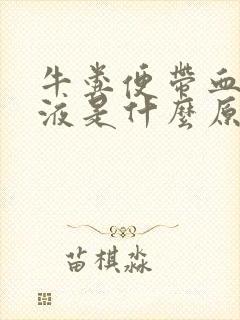 牛粪便帶血
液是什麼原
苗棋淼